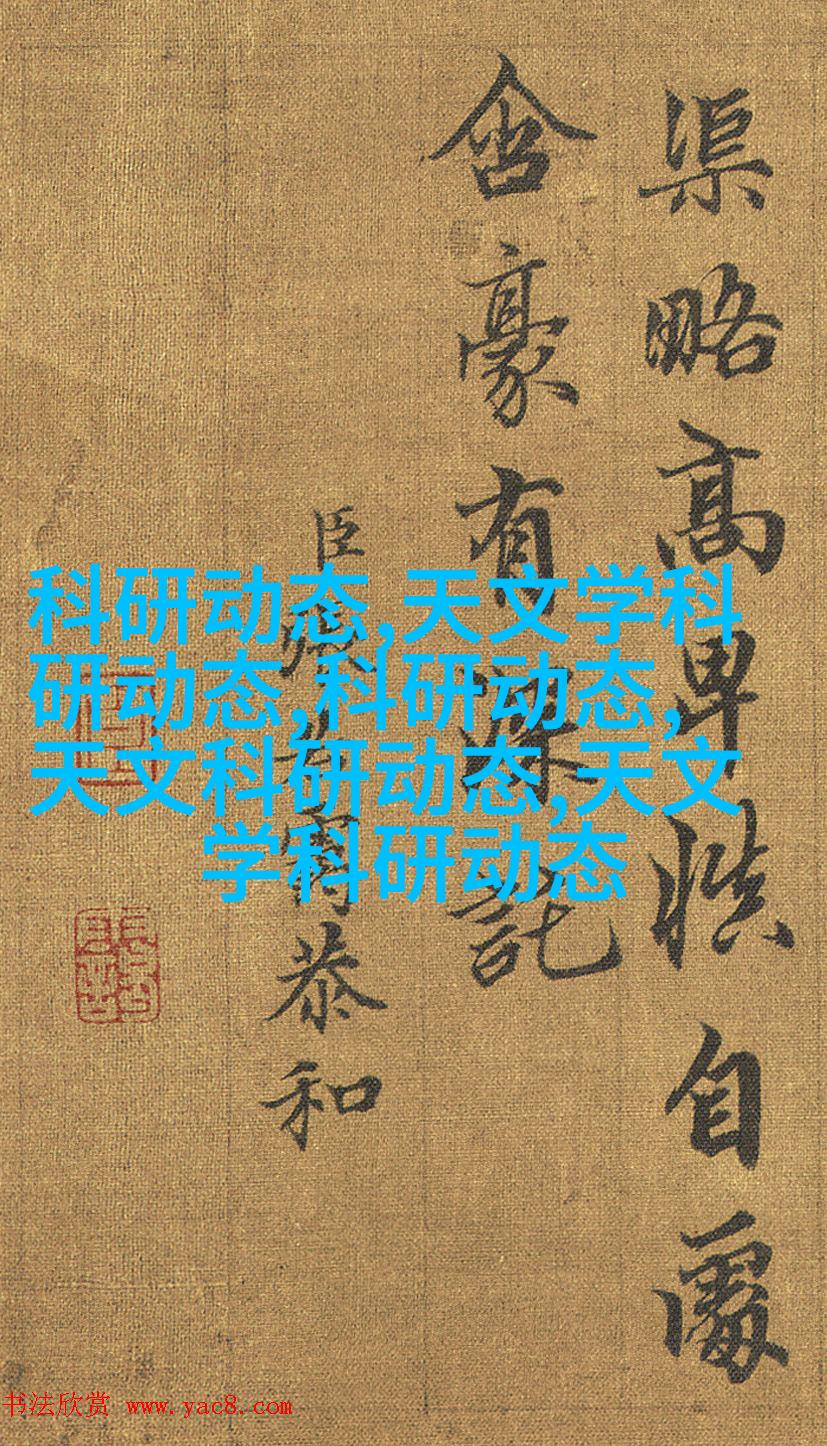 渠略高卑慎自處
含豪有託
臣恭和
科研动态,天文学科
研动态,科研动态,
天文科研动态,天文
学科研动态
书法欣赏 www.yac8.com